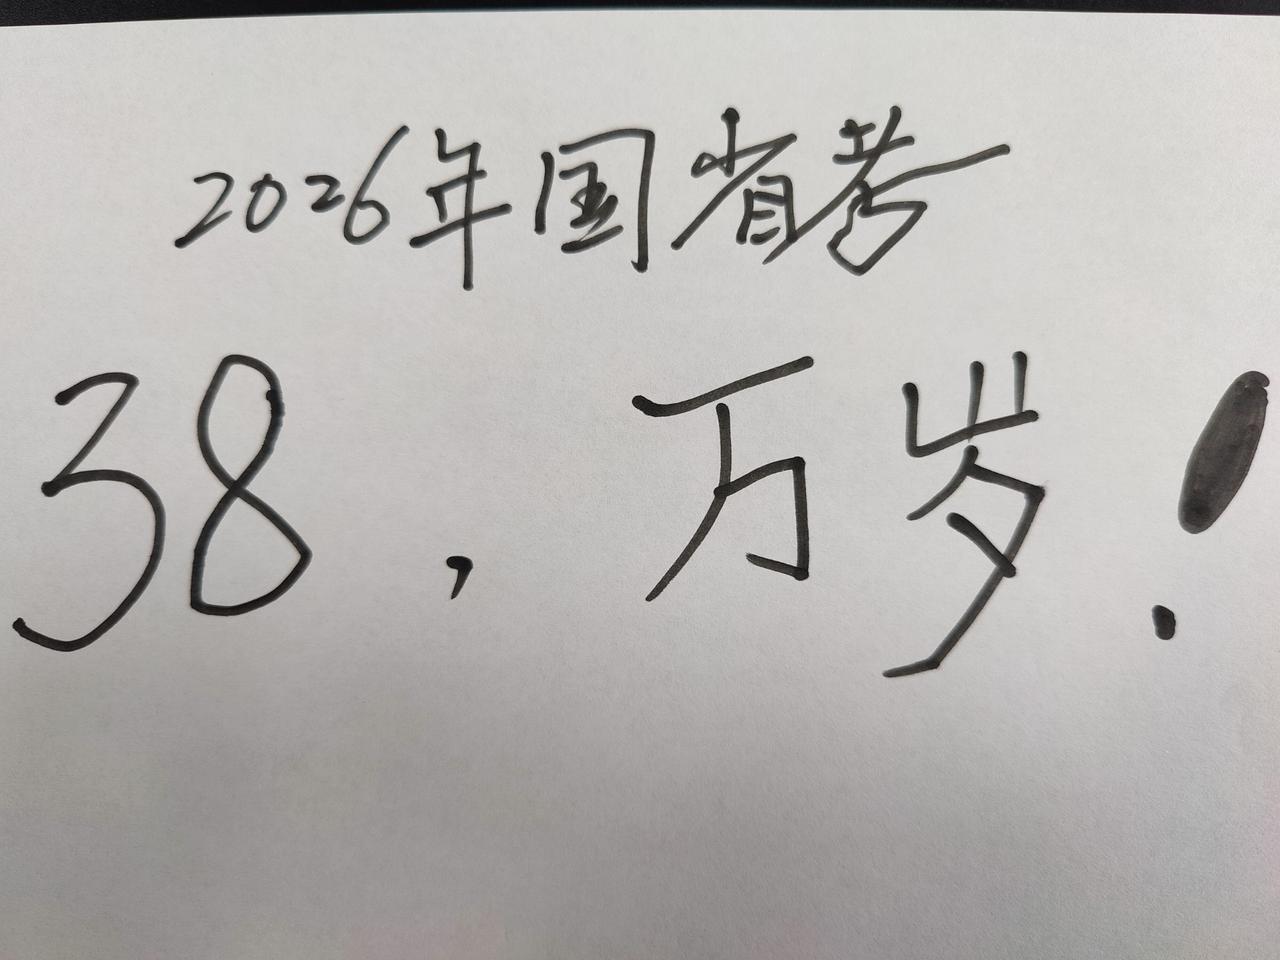 2026年国省考
38，万岁！